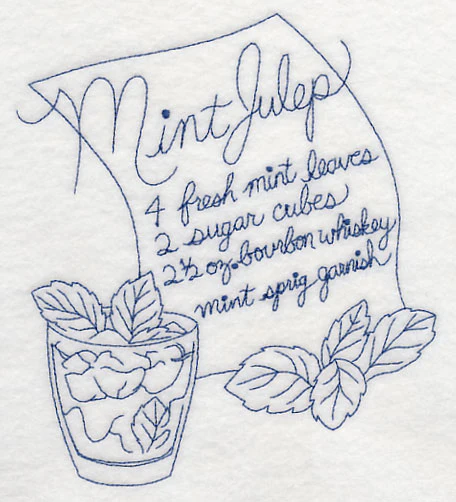 Mint Julep
4 fresh mint leaves
2 sugar cubes
2½ oz. bourbon whiskey
mint sprig garnish